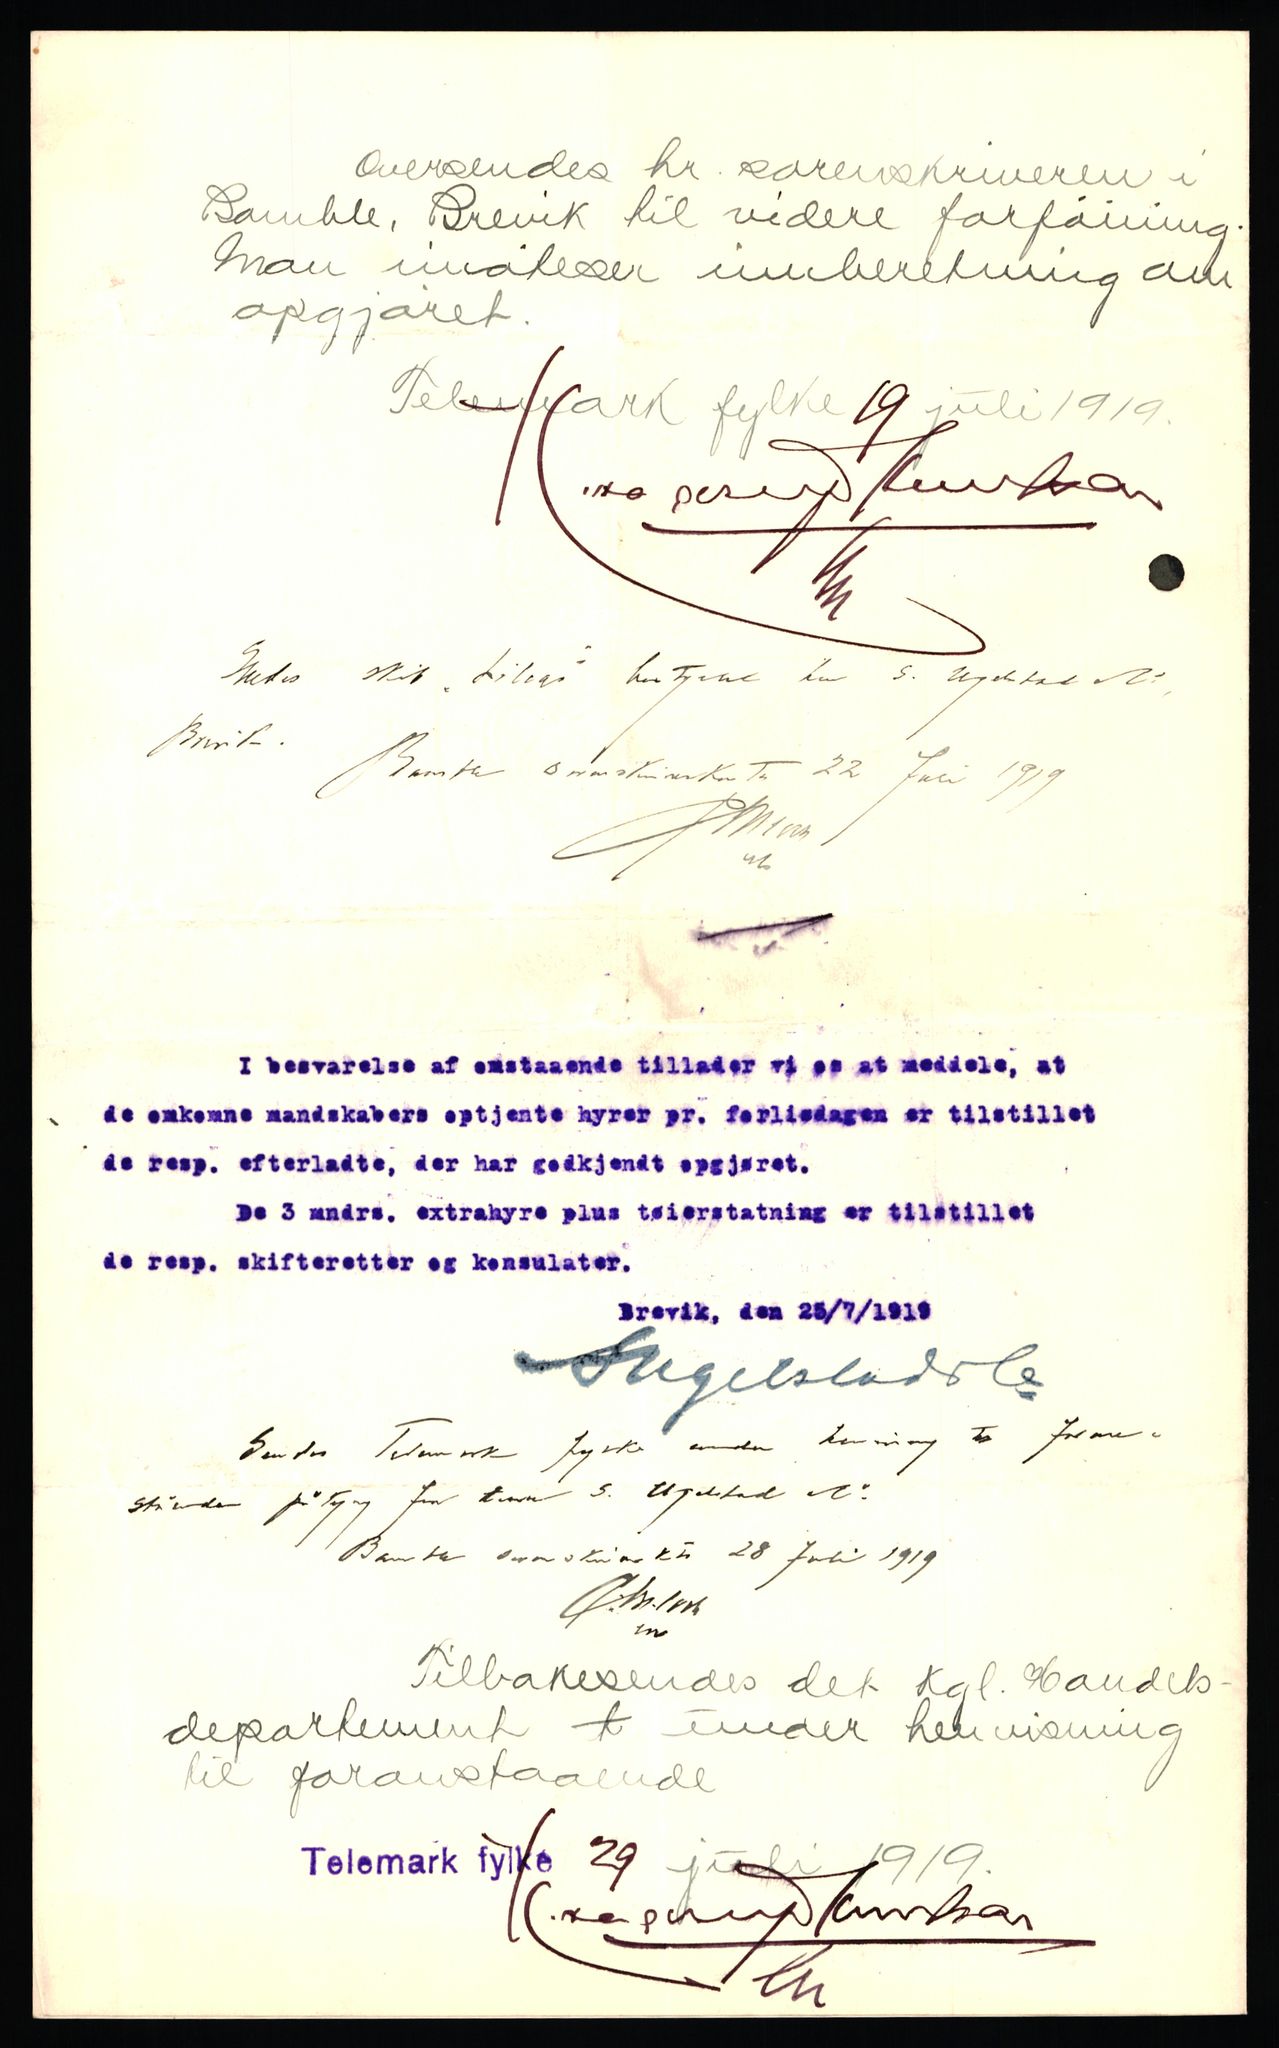 Oversendes hr. sorenskriveren i
Bamble, Brevik til videre forføining.
Man imøteser innberetning om
opgjøret.
Telemark fylke 19 juli 1919.
Sendes skib
S. Ugelstad &
Brevik.
Bamble sorenskriverkontor 22 Juli 1919
I besvarelse af omstaaende tillader vi os at meddele, at
de omkomne mandskabers optjente hyrer pr. forlisdagen er tilstillet
de resp. efterladte, der har godkjendt opgjøret.
De 3 mndrs. extrahyre plus tøierstatning er tilstillet
de resp. skifteretter og konsulater.
Brevik, den 25/7/1919
S Ugelstad & Co
Sendes Telemark fylke under henvisning til foran-
stående påtegn fra S. Ugelstad &
Bamble sorenskriverktr 28 Juli 1919
Tilbakesendes det kgl. Handels-
departement under henvisning
til foranstaaende
Telemark fylke 29 juli 1919.